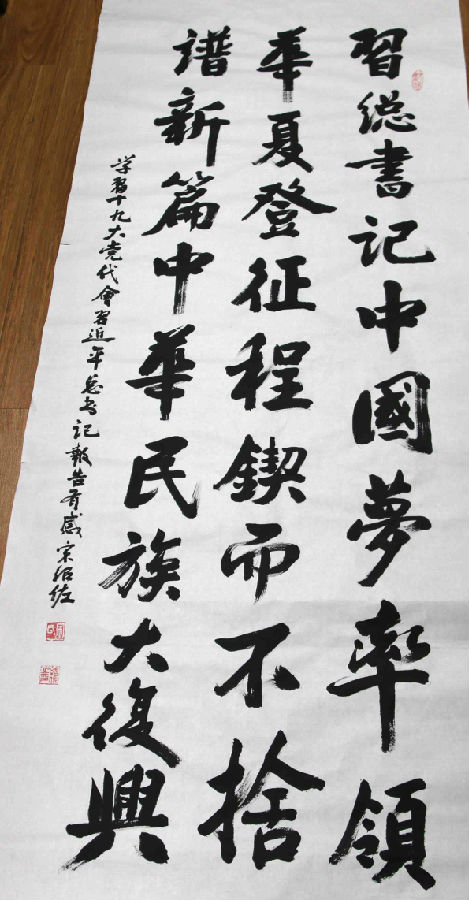 習總書記中國夢率領
華夏登征程鍥而不捨
譜新篇中華民族大復興
学習十九大党代會習近平总书記報告有感 宋